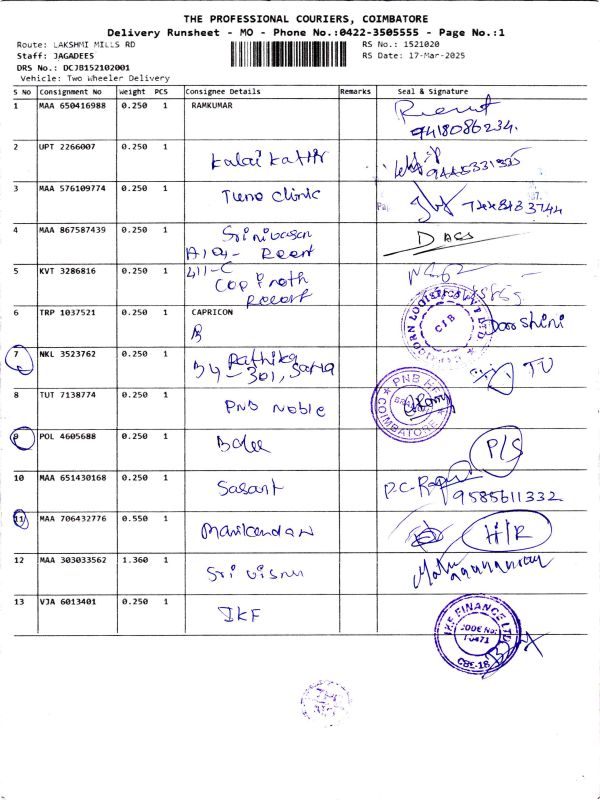 THE PROFESSIONAL COURIERS, COIMBATORE
Delivery Runsheet - MO - Phone No.:0422-3505555 - Page No.:1
Route: LAKSHMI MILLS RD
RS No.: 1521020
Staff: JAGADEES
RS Date: 17-Mar-2025
DRS No.: DCJB152102001
Vehicle: Two Wheeler Delivery
S No Consignment No Weight PCS Consignee Details Remarks Seal & Signature
1 MAA 650416988 0.250 1 RAMKUMAR
9418086234.
2 UPT 2266007 0.250 1 Kalai Kathir
3 MAA 576109774 0.250 1 Tieno clinic
4 MAA 867587439 0.250 1 Srinivasan DACS
A104-
5 KVT 3286816 0.250 1 411-C
6 TRP 1037521 0.250 1 CAPRICON
B Darshini
7 NKL 3523762 0.250 1 Rathika
B4-301, TU
8 TUT 7138774 0.250 1 PNB Noble
PNB HF
COIMBATORE
9 POL 4605688 0.250 1 P/S
10 MAA 651430168 0.250 1 Sasant
9585611332
11 MAA 706432776 0.550 1 Manikandan H/R
12 MAA 303033562 1.360 1 Sri Visnu
13 VJA 6013401 0.250 1 IKF
IKF FINANCE LTD
CODE No:
CBE-18